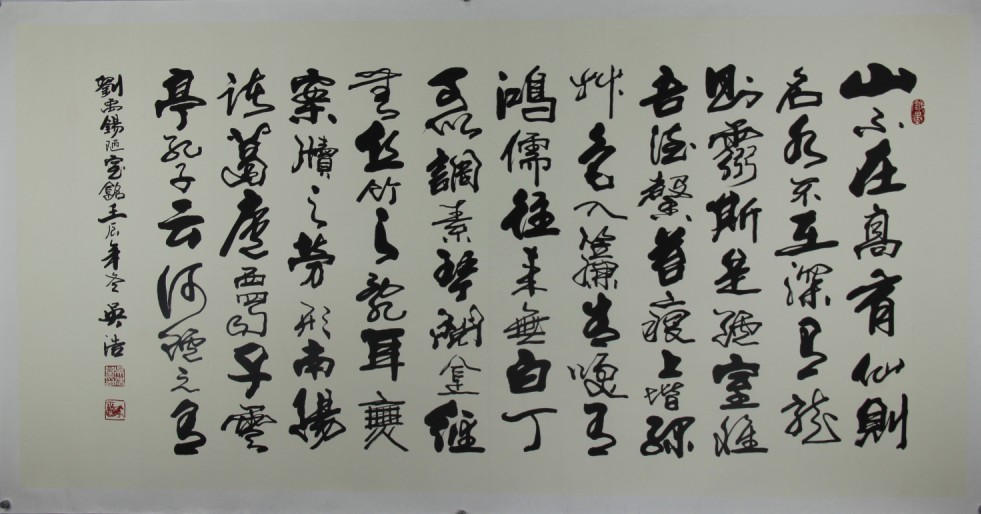 山不在高有仙則
名水不在深有龍
則靈斯是陋室惟
吾德馨苔痕上階綠
艸色入簾青咲有
鴻儒往來無白丁
可以調素琴閱金經
無絲竹之亂耳無
案牘之勞形南陽
諸葛廬西蜀子雲
亭孔子云何陋之有
劉禹錫陋室銘壬辰年冬吳浩